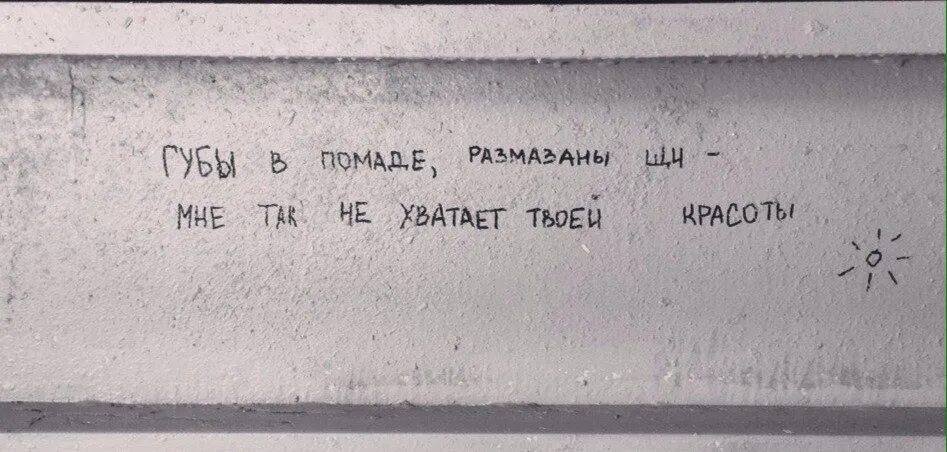 ГУБЫ В ПОМАДЕ, РАЗМАЗАНЫ ЩИ -
МНЕ ТАК НЕ ХВАТАЕТ ТВОЕЙ КРАСОТЫ